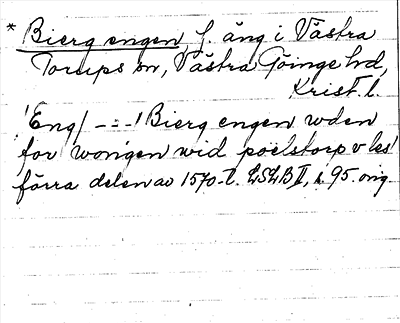 * Bierg engen, f. äng i Västra
Torups sn, Västra Göinge hd,
Krist. l.
'Eng/ -:-/ Bierg engen wden
for worigen wid poelstorp v les'
förra delen av 1570-t. LSLB II, s. 95. orig.